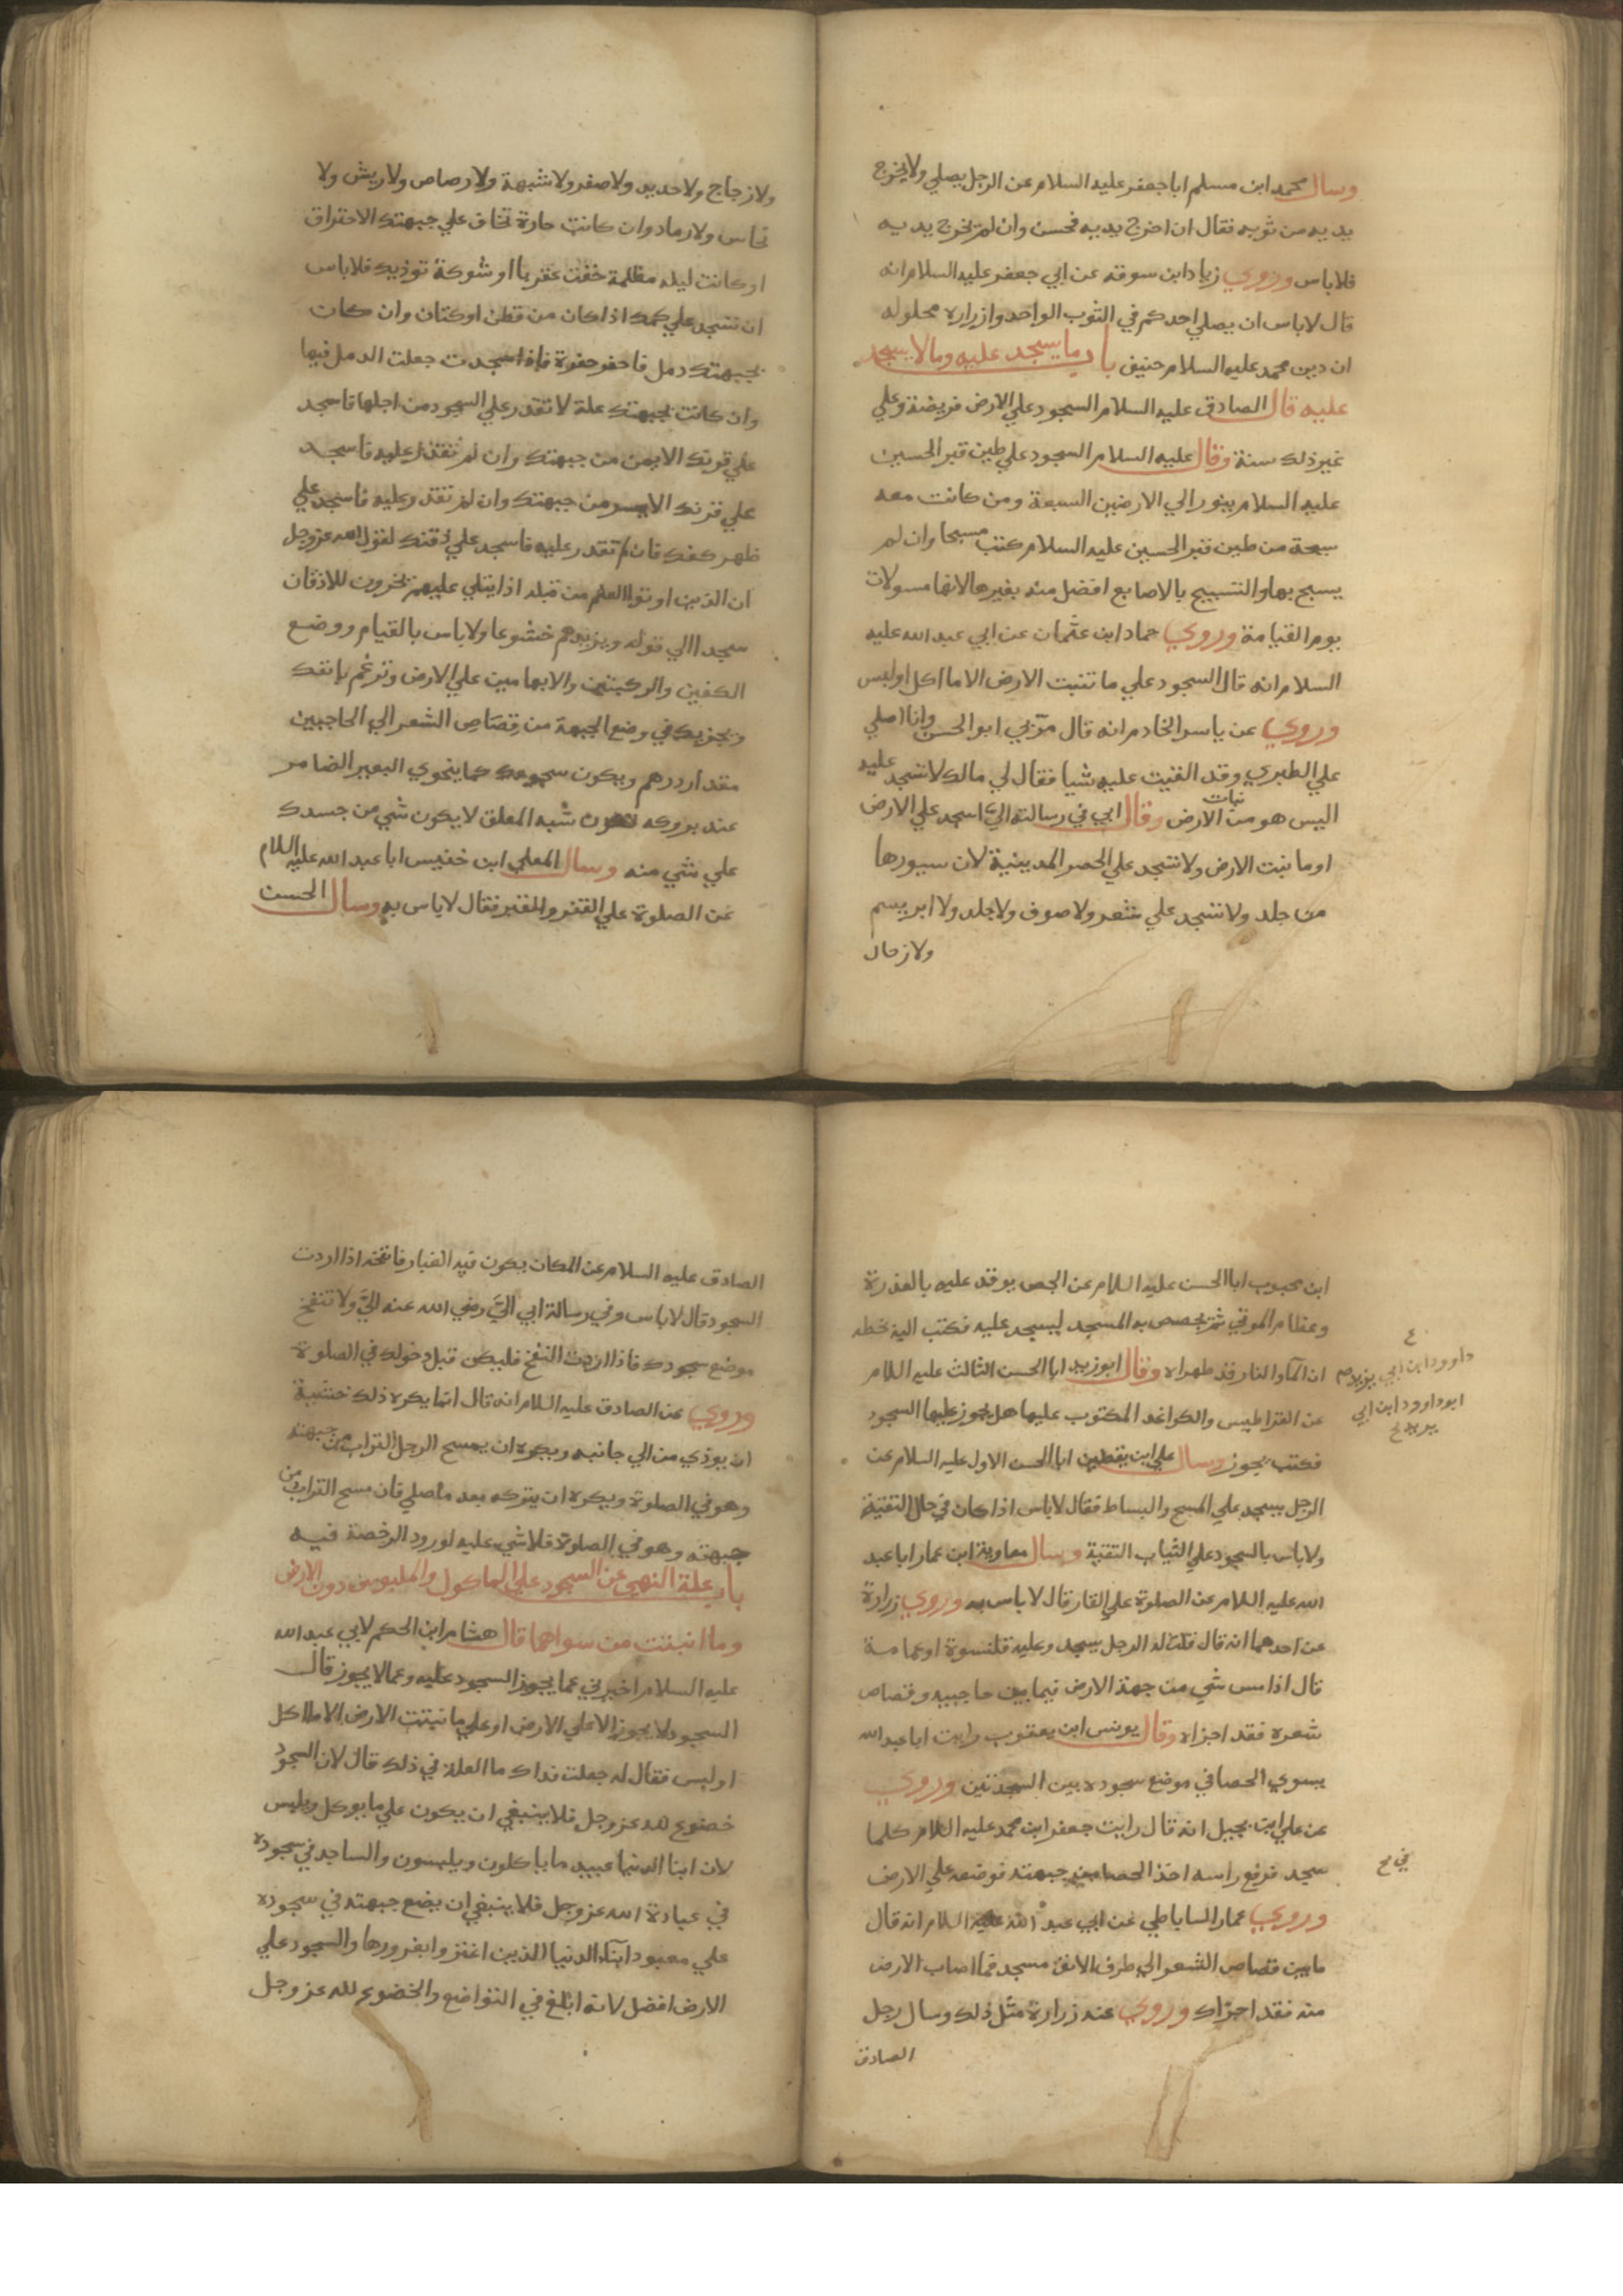 وسال محمد ابن مسلم ابا جعفر عليه السلام عن الرجل يصلي ولا يخرج
يديه من ثوبه فقال ان اخرج يديه فحسن وان لم يخرج يديه
فلا باس وروي زياد ابن سوقه عن ابي جعفر عليه السلام انه
قال لا باس ان يصلي احدكم في الثوب الواحد وازراره محلوله
ان دين محمد عليه السلام حنيف باب ما يسجد عليه وما لا يسجد
عليه قال الصادق عليه السلام السجود علي الارض فريضة وعلي
غير ذلك سنة وقال عليه السلام السجود علي طين قبر الحسين
عليه السلام ينور الي الارضين السبعة ومن كانت معه
سبحة من طين قبر الحسين عليه السلام كتب مسبحا وان لم
يسبح بها والتسبيح بالاصابع افضل منه بغيرها لانها مسولات
يوم القيامة وروي حماد ابن عثمان عن ابي عبد الله عليه
السلام انه قال السجود علي ما تنبت الارض الا ما اكل او لبس
وروي عن ياسر الخادم انه قال مر بي ابو الحسن وانا اصلي
علي الطبري وقد القيت عليه شيا فقال لي مالك لا تسجد عليه
اليس هو من نبات الارض وقال ابي في رسالته الي اسجد علي الارض
او ما نبت الارض ولا تسجد علي الحصر المدينية لان سيورها
من جلد ولا تسجد علي شعر ولا صوف ولا جلد ولا ابريسم
ولا زجاج
ولا زجاج ولا حديد ولا صفر ولا شبهة ولا رصاص ولا ريش ولا
نحاس ولا رماد وان كانت حارة تخاف علي جبهتك الاحتراق
او كانت ليله مظلمة خفت عقربا او شوكة توذيك فلا باس
ان تسجد علي كمك اذا كان من قطن او كتان وان كان
بجبهتك دمل فاحفر حفرة فاذا سجدت جعلت الدمل فيها
وان كانت بجبهتك علة لا تقدر علي السجود من اجلها فاسجد
علي قرنك الايمن من جبهتك وان لم تقدر عليه فاسجد
علي قرنك الايسر من جبهتك وان لم تقدر عليه فاسجد علي
ظهر كفك فان لم تقدر عليه فاسجد علي ذقنك لقول الله عز وجل
ان الذين اوتوا العلم من قبله اذا يتلي عليهم يخرون للاذقان
سجدا الي قوله ويزيدهم خشوعا ولا باس بالقيام ووضع
الكفين والركبتين والابهامين علي الارض وترغم بانفك
ويجزيك في وضع الجبهة من قصاص الشعر الي الحاجبين
مقدار درهم ويكون سجودك كما يتخوي البعير الضامر
عند بروكه تكون شبه المعلق لا يكون شي من جسدك
علي شي منه وسال المعلي ابن خنيس ابا عبد الله عليه السلام
عن الصلوة علي القفر والقير فقال لا باس به وسال الحسن
ابن محبوب ابا الحسن عليه السلام عن الجص يوقد عليه بالعذرة
وعظام الموتي ثم يجصص به المسجد ليسجد عليه فكتب اليه بخطه
ان المآء والنار قد طهراه وقال ابو زيد ابا الحسن الثالث عليه السلام
داوود ابن ابي يزيد صح
عن القراطيس والكواغد المكتوب عليها هل يجوز عليها السجود
ابو داوود ابن ابي
يزيد خ
فكتب يجوز وسال علي ابن يقطين ابا الحسن الاول عليه السلام عن
الرجل يسجد علي المسح والبساط فقال لا باس اذا كان في حال التقية
ولا باس بالسجود علي الثياب التقية وسال معاوية ابن عمار ابا عبد
الله عليه السلام عن الصلوة علي القار قال لا باس به وروي زرارة
عن احدهما انه قال قلت له الرجل يسجد وعليه قلنسوة او عمامة
قال اذا مس شي من جهة الارض فيما بين حاجبيه وقصاص
شعره فقد اجزاه وقال يونس ابن يعقوب رايت ابا عبد الله
يسوي الحصا في موضع سجوده بين السجدتين وروي
عن علي ابن بجيل انه قال رايت جعفر ابن محمد عليه السلام كلما
سجد فرفع راسه اخذ الحصا من جبهته فوضعه علي الارض
وروي عمار الساباطي عن ابي عبد الله عليه السلام انه قال
ما بين قصاص الشعر الي طرف الانف مسجد فما اصاب الارض
منه فقد اجزاك وروي عنه زرارة مثل ذلك وسال رجل
الصادق
الصادق عليه السلام عن المكان يكون فيه الغبار فانفخه اذا اردت
السجود قال لا باس وفي رسالة ابي الي رضي الله عنه الي ولا تنفخ
موضع سجودك فاذا اردت النفخ فليكن قبل دخولك في الصلوة
وروي عن الصادق عليه السلام انه قال انما يكره ذلك خشية
ان يوذي من الي جانبه ويكره ان يمسح الرجل التراب من جبهته
وهو في الصلوة ويكره ان يتركه بعد ما صلي فان مسح التراب من
جبهته وهو في الصلوة فلا شي عليه لورود الرخصة فيه
باب علة النهي عن السجود علي الماكول والملبوس دون الارض
وما انبتت من سواهما قال هشام ابن الحكم لابي عبد الله
عليه السلام اخبرني عما يجوز السجود عليه وعما لا يجوز قال
السجود لا يجوز الا علي الارض او علي ما نبتت الارض الا ما اكل
او لبس فقال له جعلت فداك ما العلة في ذلك قال لان السجود
خضوع لله عز وجل فلا ينبغي ان يكون علي ما يوكل ويلبس
لان ابنا الدنيا عبيد ما ياكلون ويلبسون والساجد في سجوده
في عبادة الله عز وجل فلا ينبغي ان يضع جبهته في سجوده
علي معبود ابنآء الدنيا الذين اغتروا بغرورها والسجود علي
الارض افضل لانه ابلغ في التواضع والخضوع لله عز وجل